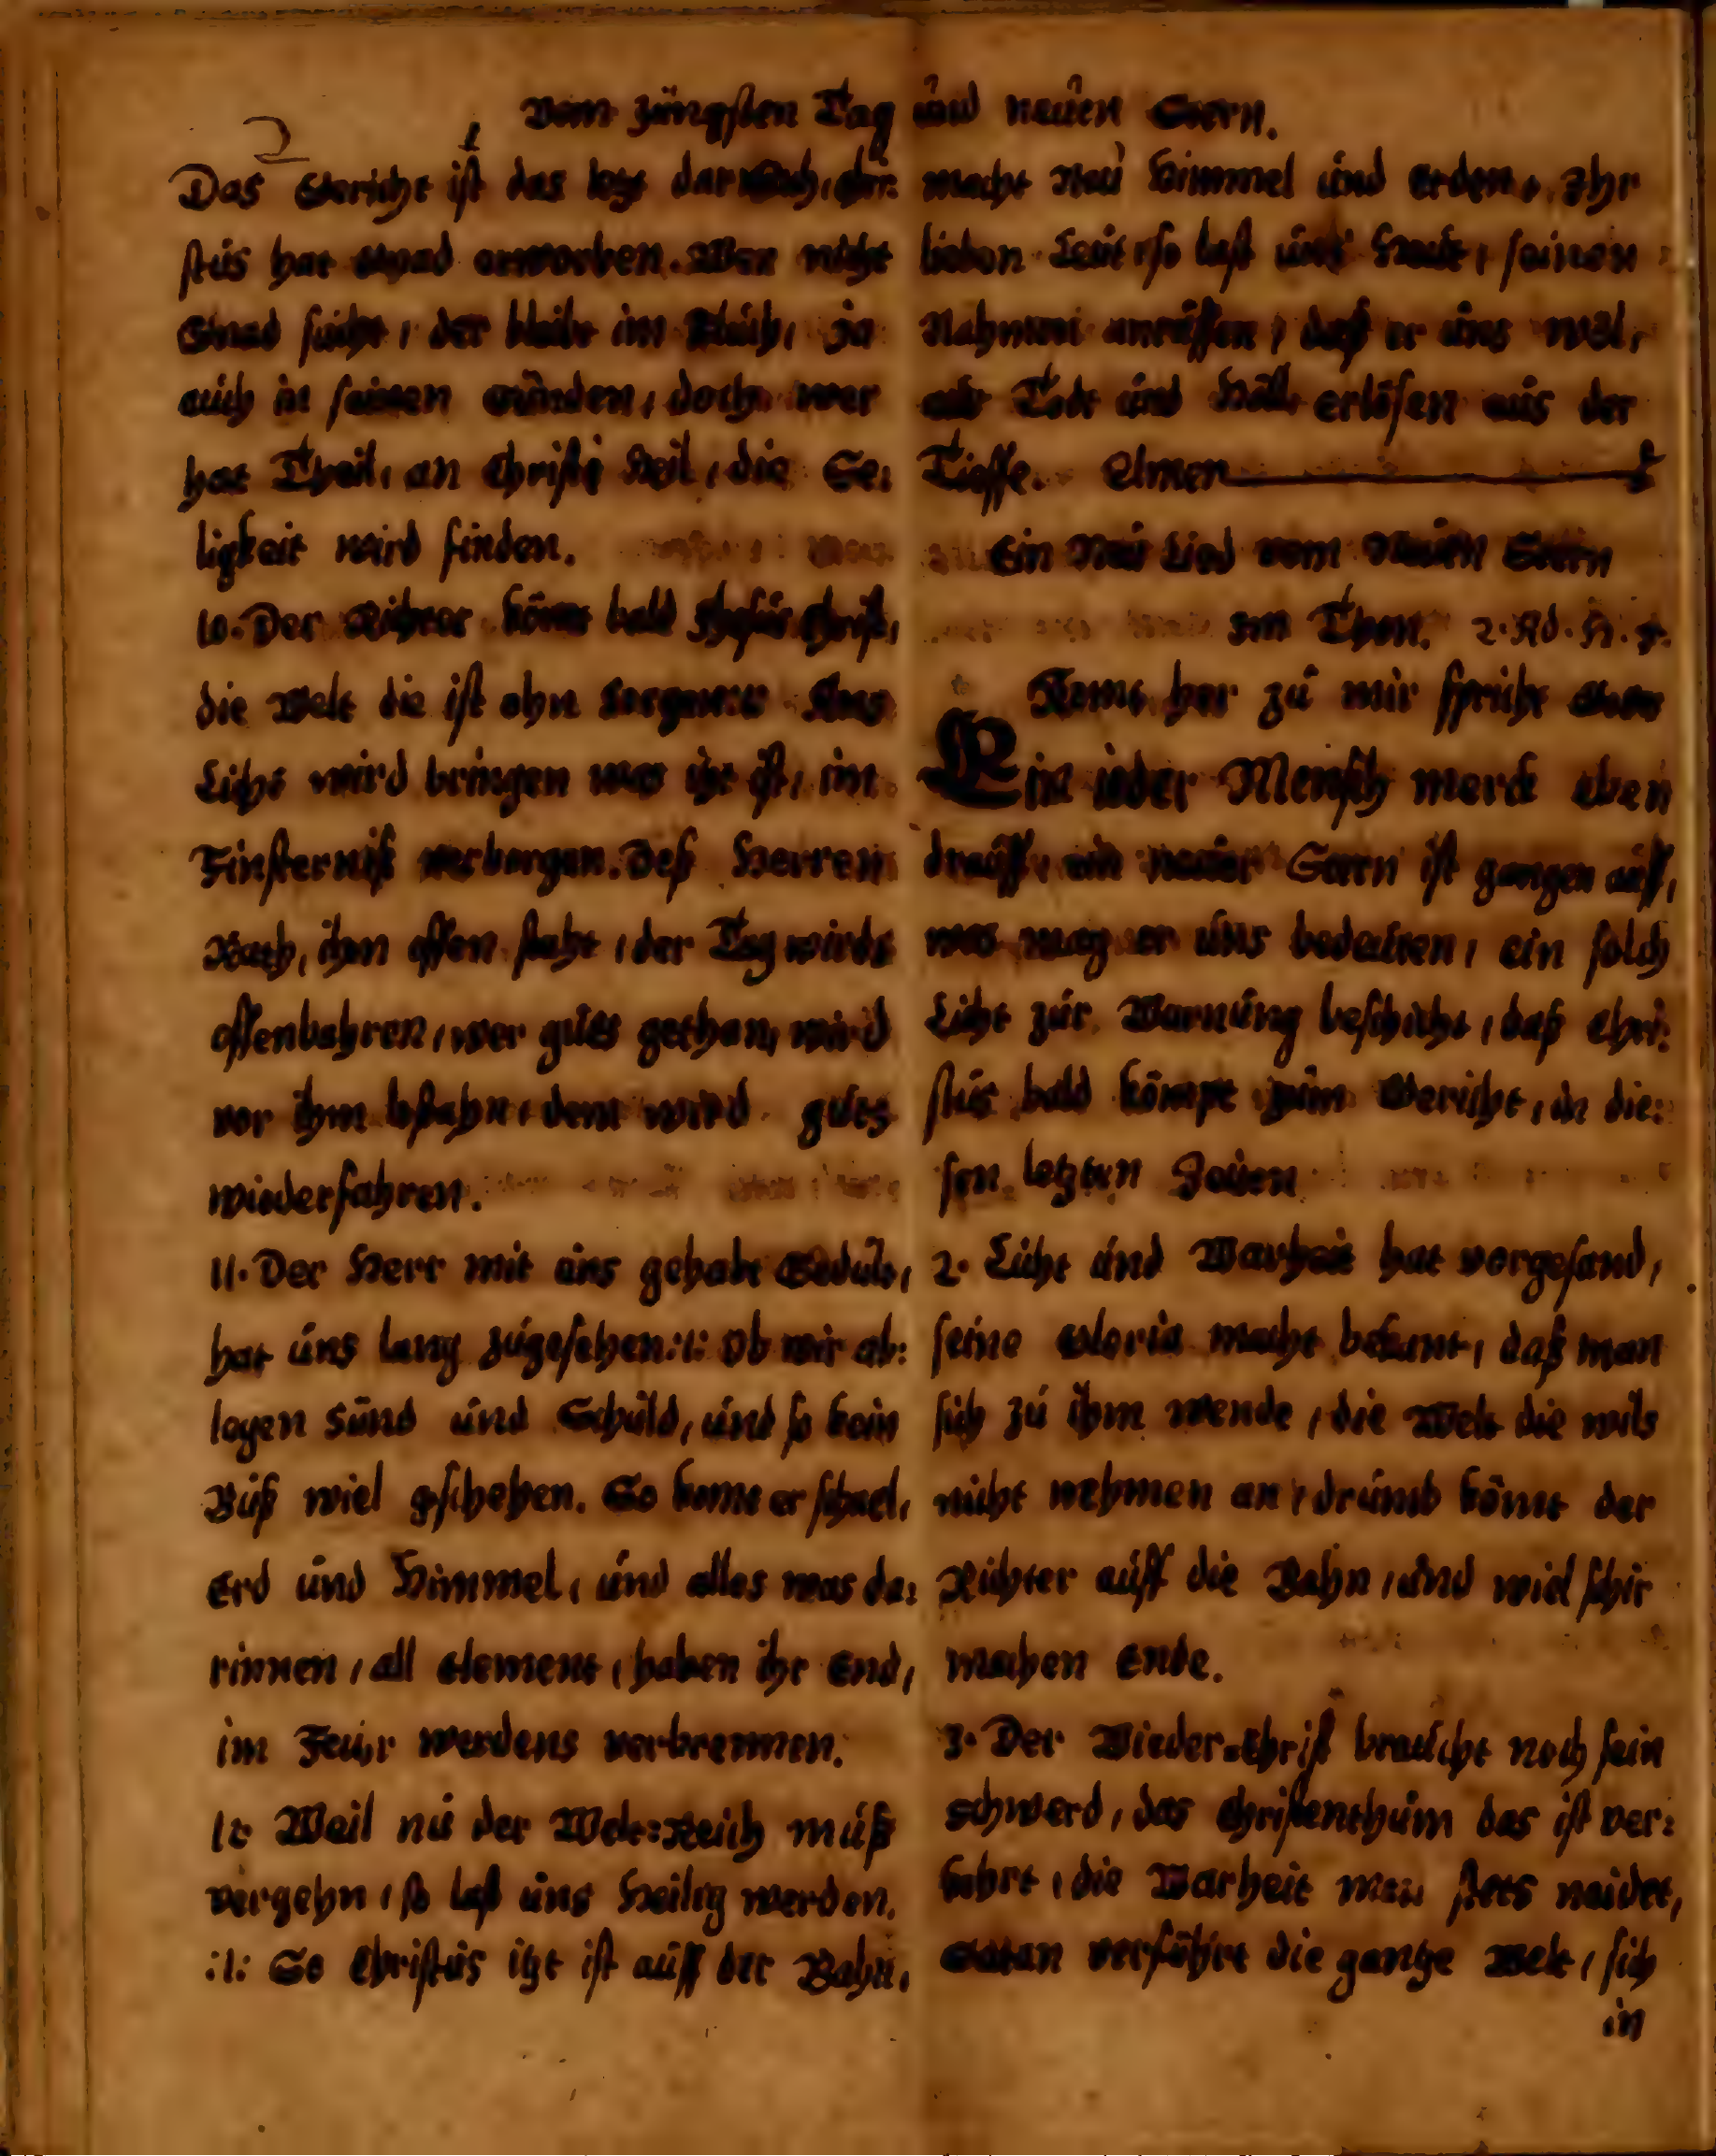 Vom Jüngsten Tag und neuen Stern.
Das Gericht ist das letzt darnach, Chri:
stus hat Gnad erworben. Wer nicht
Gnad sucht, der bleibt im Fluch, ja
auch in seinen Sünden, doch wer
hat Theil, an Christi Heil, die Se:
ligkeit wird finden.
10. Der Richter kömt bald Jhesus Christ,
die Welt die ist ohn Sorgen :/: Ans
Licht wird bringen was itzt ist, im
Finsterniß verborgen. Deß Herren
Rath, ihm offen staht, der Tag wirds
offenbahren, wer guts gethan, wird
vor ihm bestahn, dem wird guts
wiederfahren.
11. Der Herr mit uns gehabt Gedult,
hat úns lang zugesehen :/: Ob wir ab:
legen Sünd und Schuld, und so kein
Buß wiel geschehen. So komt er schnel,
Erd und Himmel, und alles was da:
rinnen, all Element, haben ihr End,
im Feuer werdens verbrennen.
12 Weil nu der Welt=Reich muß
vergehn, so last uns Heilig werden.
:/: So Christus itzt ist auff der Bahn,
macht Neu Himmel und Erden, Ihr
lieben Leut, so last uns Heut, seinen
Nahmen anruffen, daß er uns wöl,
aus Todt und Höll erlösen aus der
Tieffe. Amen
Ein Neu Lied vom Neuen Stern
im Thon.
Komt her zu mir spricht Gottes
Ein ieder Mensch merck eben
drauff, ein neuer Stern ist gangen auff,
was mag er uns bedeuten, ein solch
Licht zur Warnung beschicht, daß Chri:
stus bald kömpt zum Gericht, in die:
sen letzten Zeiten
2. Licht und Warheit hat vorgesand,
seine Gloria macht bekant, daß man
sich zu ihm wende, die Welt die wils
nicht nehmen an, drumb kömt der
Richter auff die Bahn, und wiel schir
machen Ende.
3. Der Wieder=Christ braucht noch sein
Schwerd, das Christenthum das ist ver:
kehrt, die Warheit man stets neidet,
Satan verführt die gantze Welt, sich
in